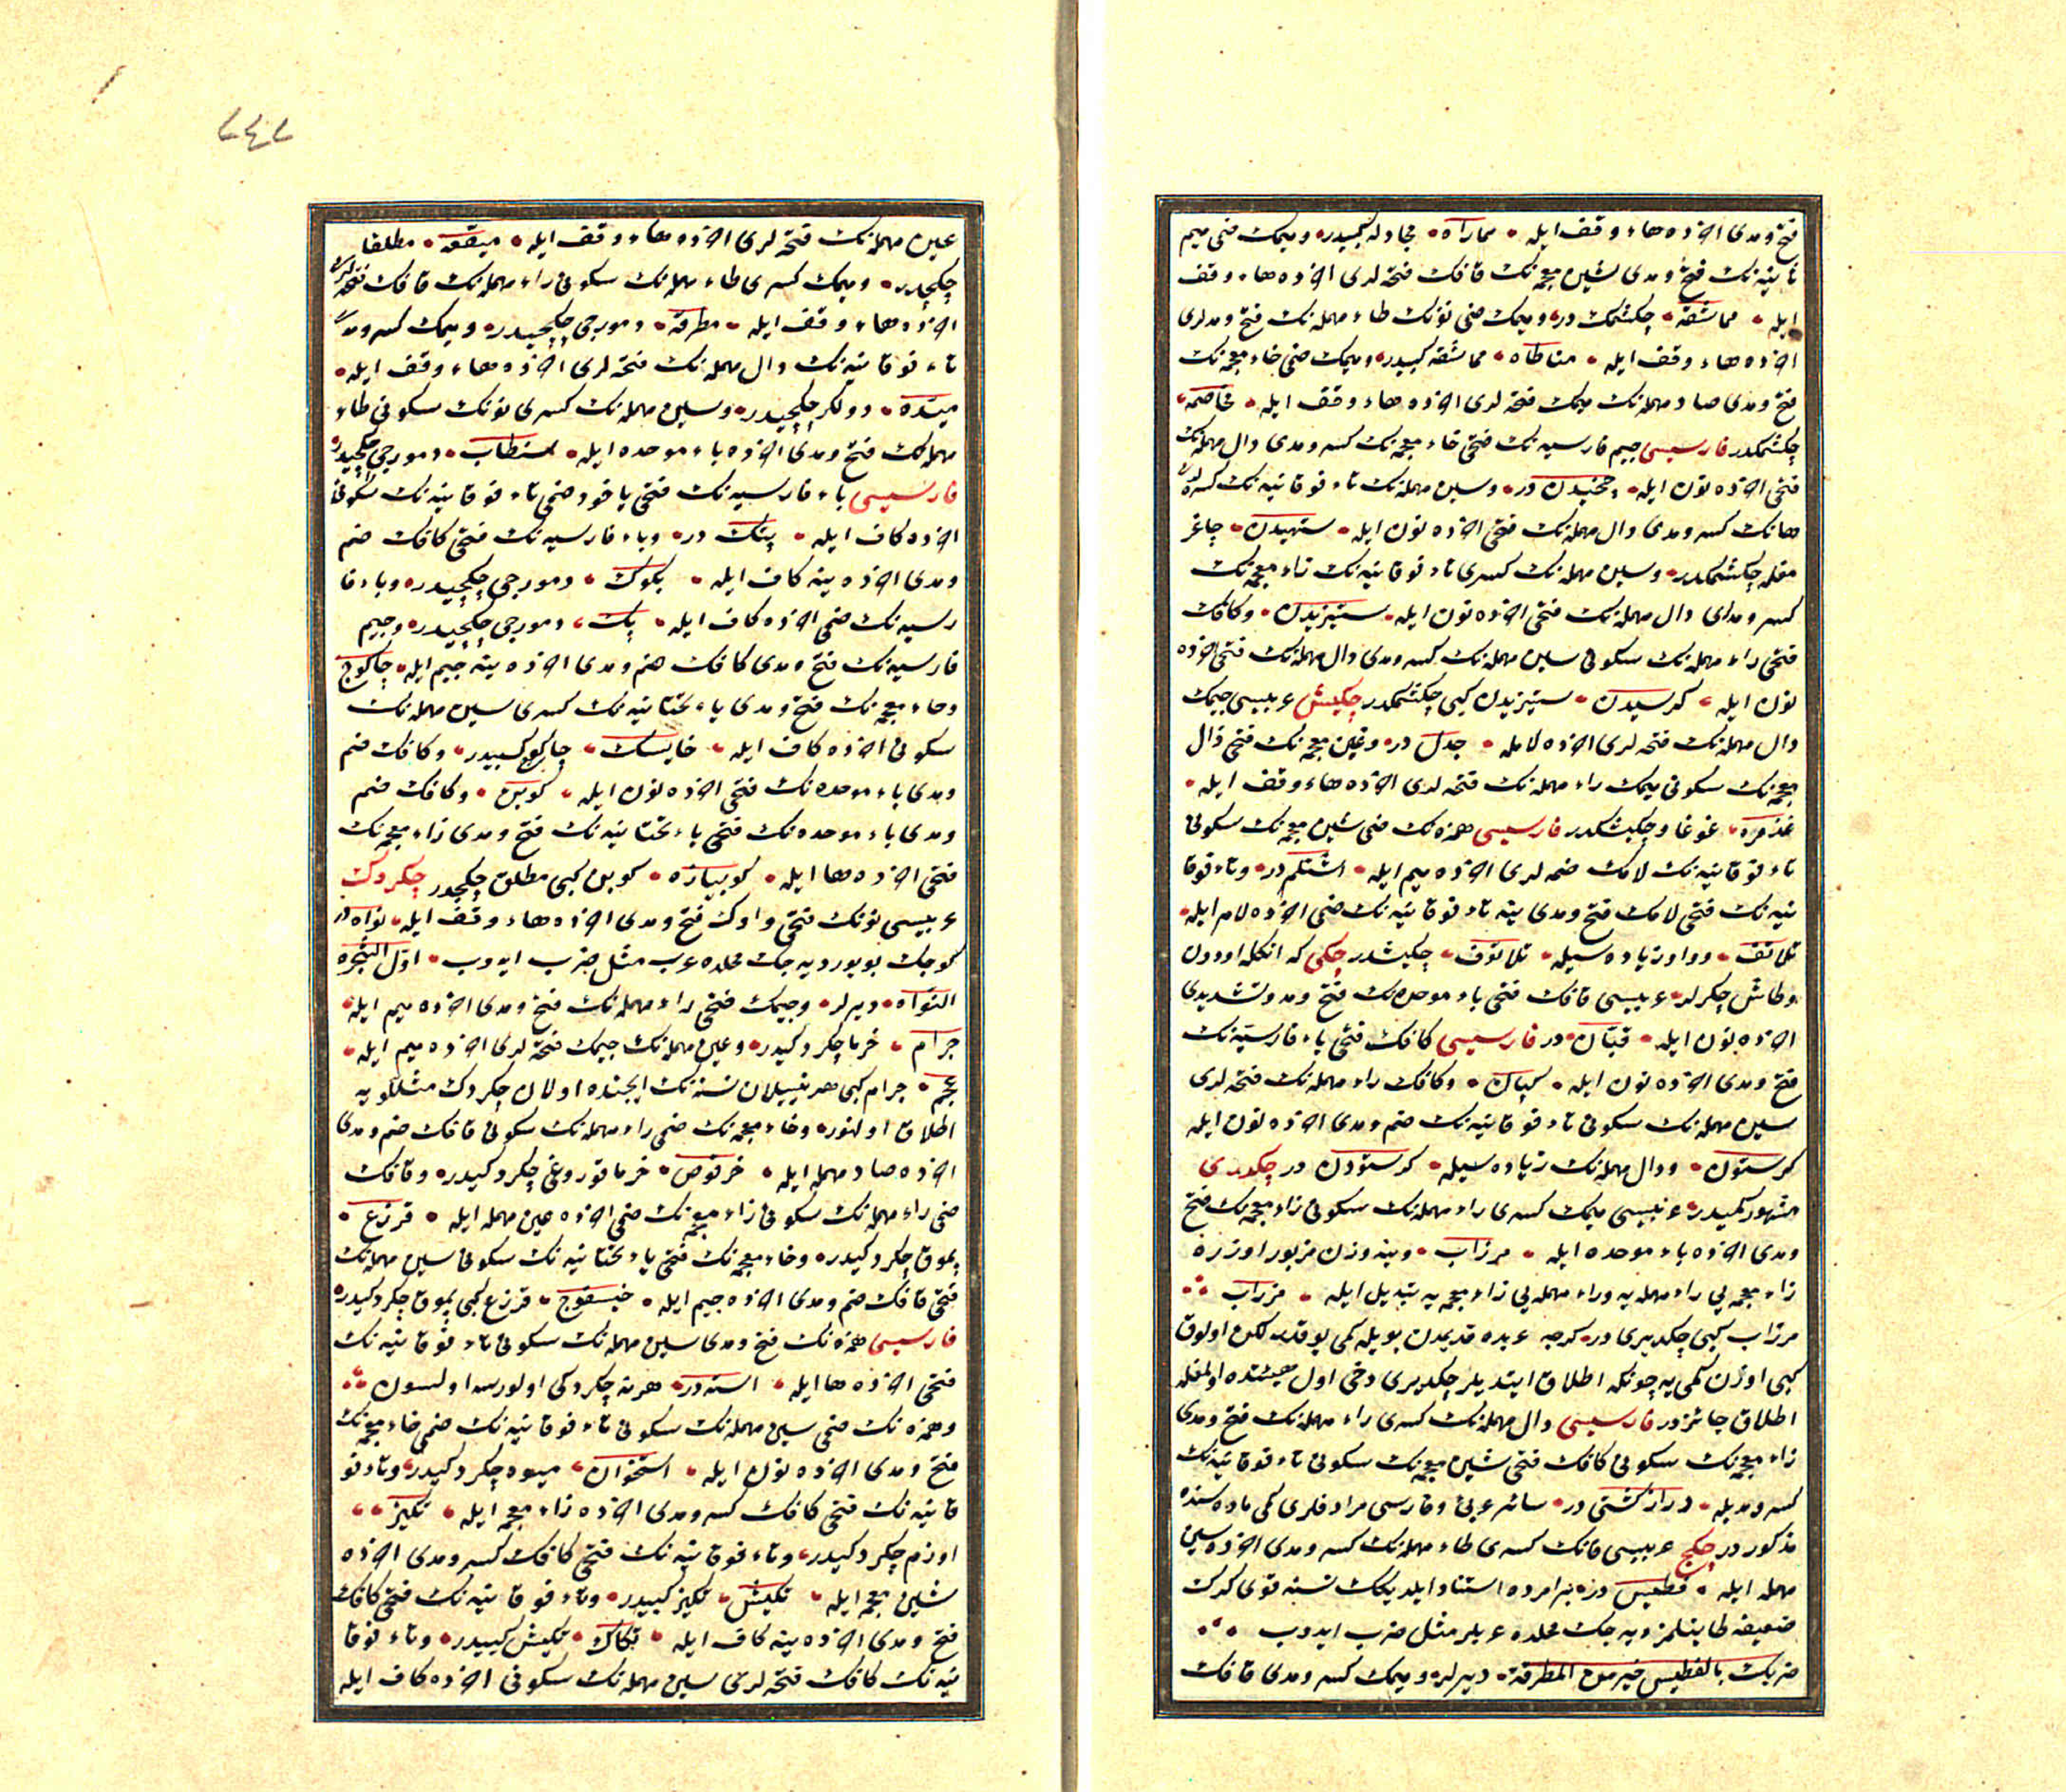 فتح و مدی اخرده هاء وقف ایله • مماراه • مجادله کبیدر • و میمک ضمی میم
ثانیه‌نک فتح و مدی شین معجمه‌نک قافک فتحه لری اخرده هاء وقف
ایله • مماشقه • چکشمک در • و میمک ضمی نونک طاء مهمله‌نک فتح و مدلری
اخرده هاء وقف ایله • مناطاه • مماشقه کبیدر • و میمک ضمی خاء معجمه‌نک
فتح و مدی صاد مهمله‌نک میمک فتحه لری اخرده هاء وقف ایله • مخاصمه •
چکشمکدر فارسیسی جیم فارسیه‌نک فتحی خاء معجمه‌نک کسر و مدی دال مهمله‌نک
فتحی اخرده نون ایله • چخیدن در • و سین مهمله‌نک تاء فوقانیه‌نک کسره لری
هانک کسر و مدی دال مهمله‌نک فتحی اخرده نون ایله • ستهیدن • چاغر
مقله چکشمکدر • و سین مهمله‌نک کسری تاء فوقانیه‌نک زاء معجمه‌نک
کسر و مدای دال مهمله‌نک فتحی اخرده نون ایله • ستیزیدن • و کافک
فتحی راء مهمله‌نک سکونی سین مهمله‌نک کسر و مدی دال مهمله‌نک فتحی اخرده
نون ایله • کرسیدن • ستیزیدن کبی چکشمکدر چکیش عربیسی جیمک
دال مهمله‌نک فتحه لری اخرده لامله • جدل در • و غین معجمه‌نک فتحی ذال
معجمه‌نک سکونی میمک راء مهمله‌نک فتحه لری اخرده هاء وقف ایله •
غذمره • غوغا و چکیشکدر فارسیسی همزه‌نک ضمی شین معجمه‌نک سکونی
تاء فوقانیه‌نک لامک ضمه لری اخرده میم ایله • اشتلم در • و تاء فوقا
نیه‌نک فتحی لامک فتح و مدی ینه تاء فوقانیه‌نک ضمی اخرده لام ایله •
تلاتف • و واو زیاده سیله • تلاتوف • چکیشدر چکی که انکله اودون
و طاش چکرلر • عربیسی قافک فتحی باء موحده‌نک فتح و مد و تشدیدی
اخرده نون ایله • قبّان • در فارسیسی کافک فتحی باء فارسیه‌نک
فتح و مدی اخرده نون ایله • کپان • و کافک راء مهمله‌نک فتحه لری
سین مهمله‌نک سکونی تاء فوقانیه‌نک ضم و مدی اخرده نون ایله
کرستون • و دال مهمله‌نک زیاده سیله • کرستودن در چکدری
مشهور کمیدر • عربیسی میمک کسری راء مهمله‌نک سکونی زاء معجمه‌نک فتح
و مدی اخرده باء موحده ایله • مرزاب • و ینه وزن مزبور اوزره
زاء معجمه یی راء مهمله یه و راء مهمله یی زاء معجمه یه تبدیل ایله • مزراب
مرزاب کبی چکدیری در • کرچه عربده قدیمدن بویله کمی یوقدر لکن اولوق
کبی اوزن کمی یه چونکه اطلاق ایتدیلر چکدیری دخی اول هیئتده اولمغله
اطلاق جائزدر فارسیسی دال مهمله‌نک کسری راء مهمله‌نک فتح و مدی
زاء معجمه‌نک سکونی کافک فتحی شین معجمه‌نک سکونی تاء فوقانیه‌نک
کسر و مدیله • درازکشتی در • سائر عربی و فارسی مرادفلری کمی ماده سنده
مذکوردر چکج عربیسی فانک کسری طاء مهمله‌نک کسر و مدی اخرده سین
مهمله ایله • فطیس در • بر امرده استناد ایلدیکک نسنه قوی کرک
ضعیفه طاینلمز دیه جک محلده عربلر مثل ضرب ایدوب
ضربک بالفطیس خیر من المطرقة • دیرلر • و میمک کسر و مدی قافک
عین مهمله‌نک فتحه لری اخرده هاء وقف ایله • میقعه • مطلقا
چکجدر • و میمک کسری طاء مهمله‌نک سکونی راء مهمله‌نک قافک فتحه لری
اخرده هاء وقف ایله • مطرقه • دمورجی چکجیدر • و میمک کسر و مدی
تاء فوقانیه‌نک دال مهمله‌نک فتحه لری اخرده هاء وقف ایله •
میتده • دولکر چکجیدر • و سین مهمله‌نک کسری نونک سکونی طاء
مهمله‌نک فتح و مدی اخرده باء موحده ایله • سنطاب • دمورجی چکجیدر
فارسیسی باء فارسیه‌نک فتحی یاخود ضمی تاء فوقانیه‌نک سکونی
اخرده کاف ایله • پتک در • و باء فارسیه‌نک فتحی کافک ضم
و مدی اخرده ینه کاف ایله • پکوک • دمورجی چکجیدر • و باء فا
رسیه‌نک ضمی اخرده کاف ایله • پک • دمورجی چکجیدر • و جیم
فارسیه‌نک فتح و مدی کافک ضم و مدی اخرده ینه جیم ایله • چاکوچ
و خاء معجمه‌نک فتح و مدی یاء تحتانیه‌نک کسری سین مهمله‌نک
سکونی اخرده کاف ایله • خایسک • چاکوچ کبیدر • و کافک ضم
و مدی باء موحده‌نک فتحی اخرده نون ایله • کوبن • و کافک ضم
و مدی باء موحده‌نک فتحی یاء تحتانیه‌نک فتح و مدی زاء معجمه‌نک
فتحی اخرده ها ایله • کوبیازه • کوبن کبی مطلق چکجدر چکردک
عربیسی نونک فتحی واوک فتح و مدی اخرده هاء وقف ایله • نواه در
کوچک بویور دیه جک محلده عرب مثل ضرب ایدوب • اوّل الشجره
النواه • دیرلر • و جیمک فتحی راء مهمله‌نک فتح و مدی اخرده میم ایله •
جرام • خرما چکردکیدر • و عین مهمله‌نک جیمک فتحه لری اخرده میم ایله •
عجم • جرام کبی هر ییلان نسنه‌نک ایچنده اولان چکردک مثللو یه
اطلاق اولنور • و خاء معجمه‌نک ضمی راء مهمله‌نک سکونی قافک ضم و مدی
اخرده صاد مهمله ایله • خرقوص • خرما قوروغی چکردکیدر • و قافک
ضمی راء مهمله‌نک سکونی زاء معجمه‌نک ضمی اخرده عین مهمله ایله • قرزع •
پموق چکردکیدر • و خاء معجمه‌نک فتحی یاء تحتانیه‌نک سکونی سین مهمله‌نک
فتحی فافک ضم و مدی اخرده جیم ایله • خیسفوج • قرزع کبی پموق چکردکیدر
فارسیسی همزه‌نک فتح و مدی سین مهمله‌نک سکونی تاء فوقانیه‌نک
فتحی اخرده ها ایله • استه در • هر نه چکردکی اولورسه اولسون
و همزه‌نک ضمی سین مهمله‌نک سکونی تاء فوقانیه‌نک ضمی خاء معجمه‌نک
فتح و مدی اخرده نون ایله • استخوان • میوه چکردکیدر • و تاء فو
قانیه‌نک فتحی کافک کسر و مدی اخرده زاء معجمه ایله • تکیز
اوزم چکردکیدر • و تاء فوقانیه‌نک فتحی کافک کسر و مدی اخرده
شین معجمه ایله • تکیش • تکیز کبیدر • و تاء فوقانیه‌نک فتحی کافک
فتح و مدی اخرده ینه کاف ایله • تکاک • تکیش کبیدر • و تاء فوقا
نیه‌نک کافک فتحه لری سین مهمله‌نک سکونی اخرده کاف ایله